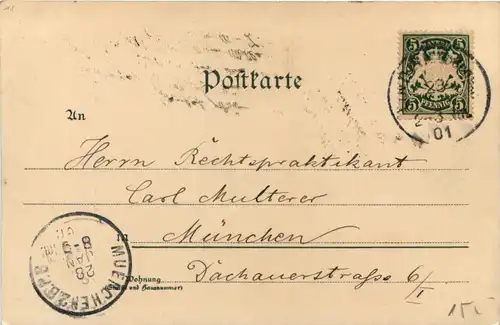 5 5
5 PFENNIG 5
01
Postkarte
An
Herrn Rechtspraktikant
Carl Multerer
in München
Wohnung
(Straße und Hausnummer)
Dachauerstraße 6/I
MUENCHEN 2 B.P.B
28
JAN
8-9